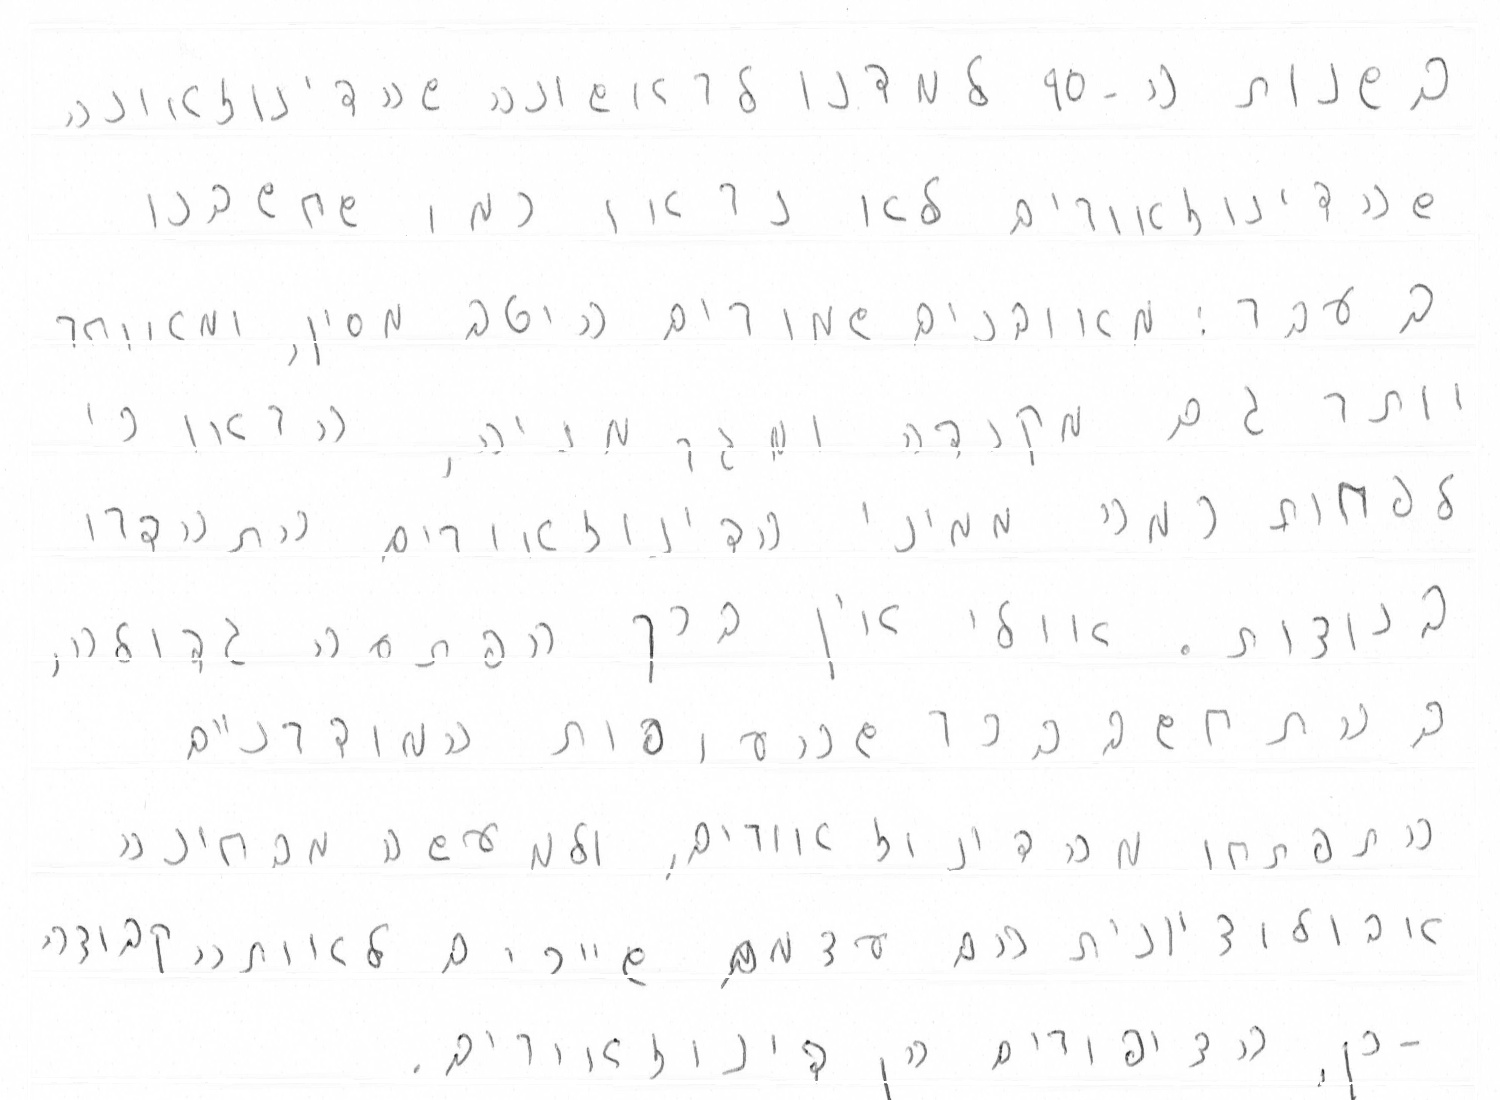 בשנות ה-90 למדנו לראשונה שהדינוזאונה
שהדינוזאורים לא נראו כמו שחשבנו
בעבר: מאובנים שמורים היטב מסין, ומאוחר
יותר גם מקנדה ומגרמניה, הראו כי
לפחות כמה ממיני הדינוזאורים התהדרו
בנוצות. אולי אין בכך הפתעה גדולה,
בהתחשב בכך שהעופות המודרניים
התפתחו מהדינוזאורים, ולמעשה מבחינה
אבולוציונית הם עצמם שייכים לאותה קבוצה
-כן, הציפורים הן דינוזאורים.